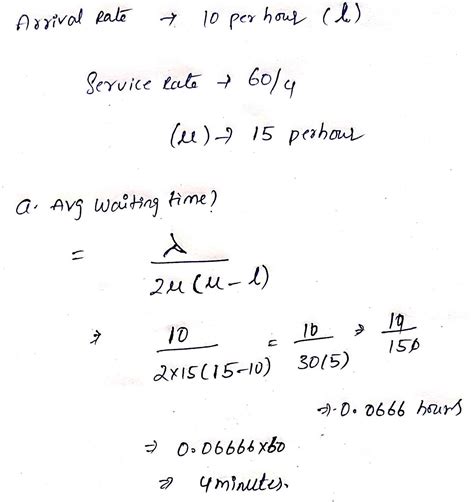 Arrival Rate → 10 per hour (l)
Service Rate → 60/4
(μ) → 15 perhour
a. Avg Waiting time?
= λ / 2μ(μ-l)
⇒ 10 / 2×15(15-10) = 10 / 30(5) ⇒ 10 / 150
⇒ 0.0666 hours
⇒ 0.06666×60
⇒ 4 minutes.